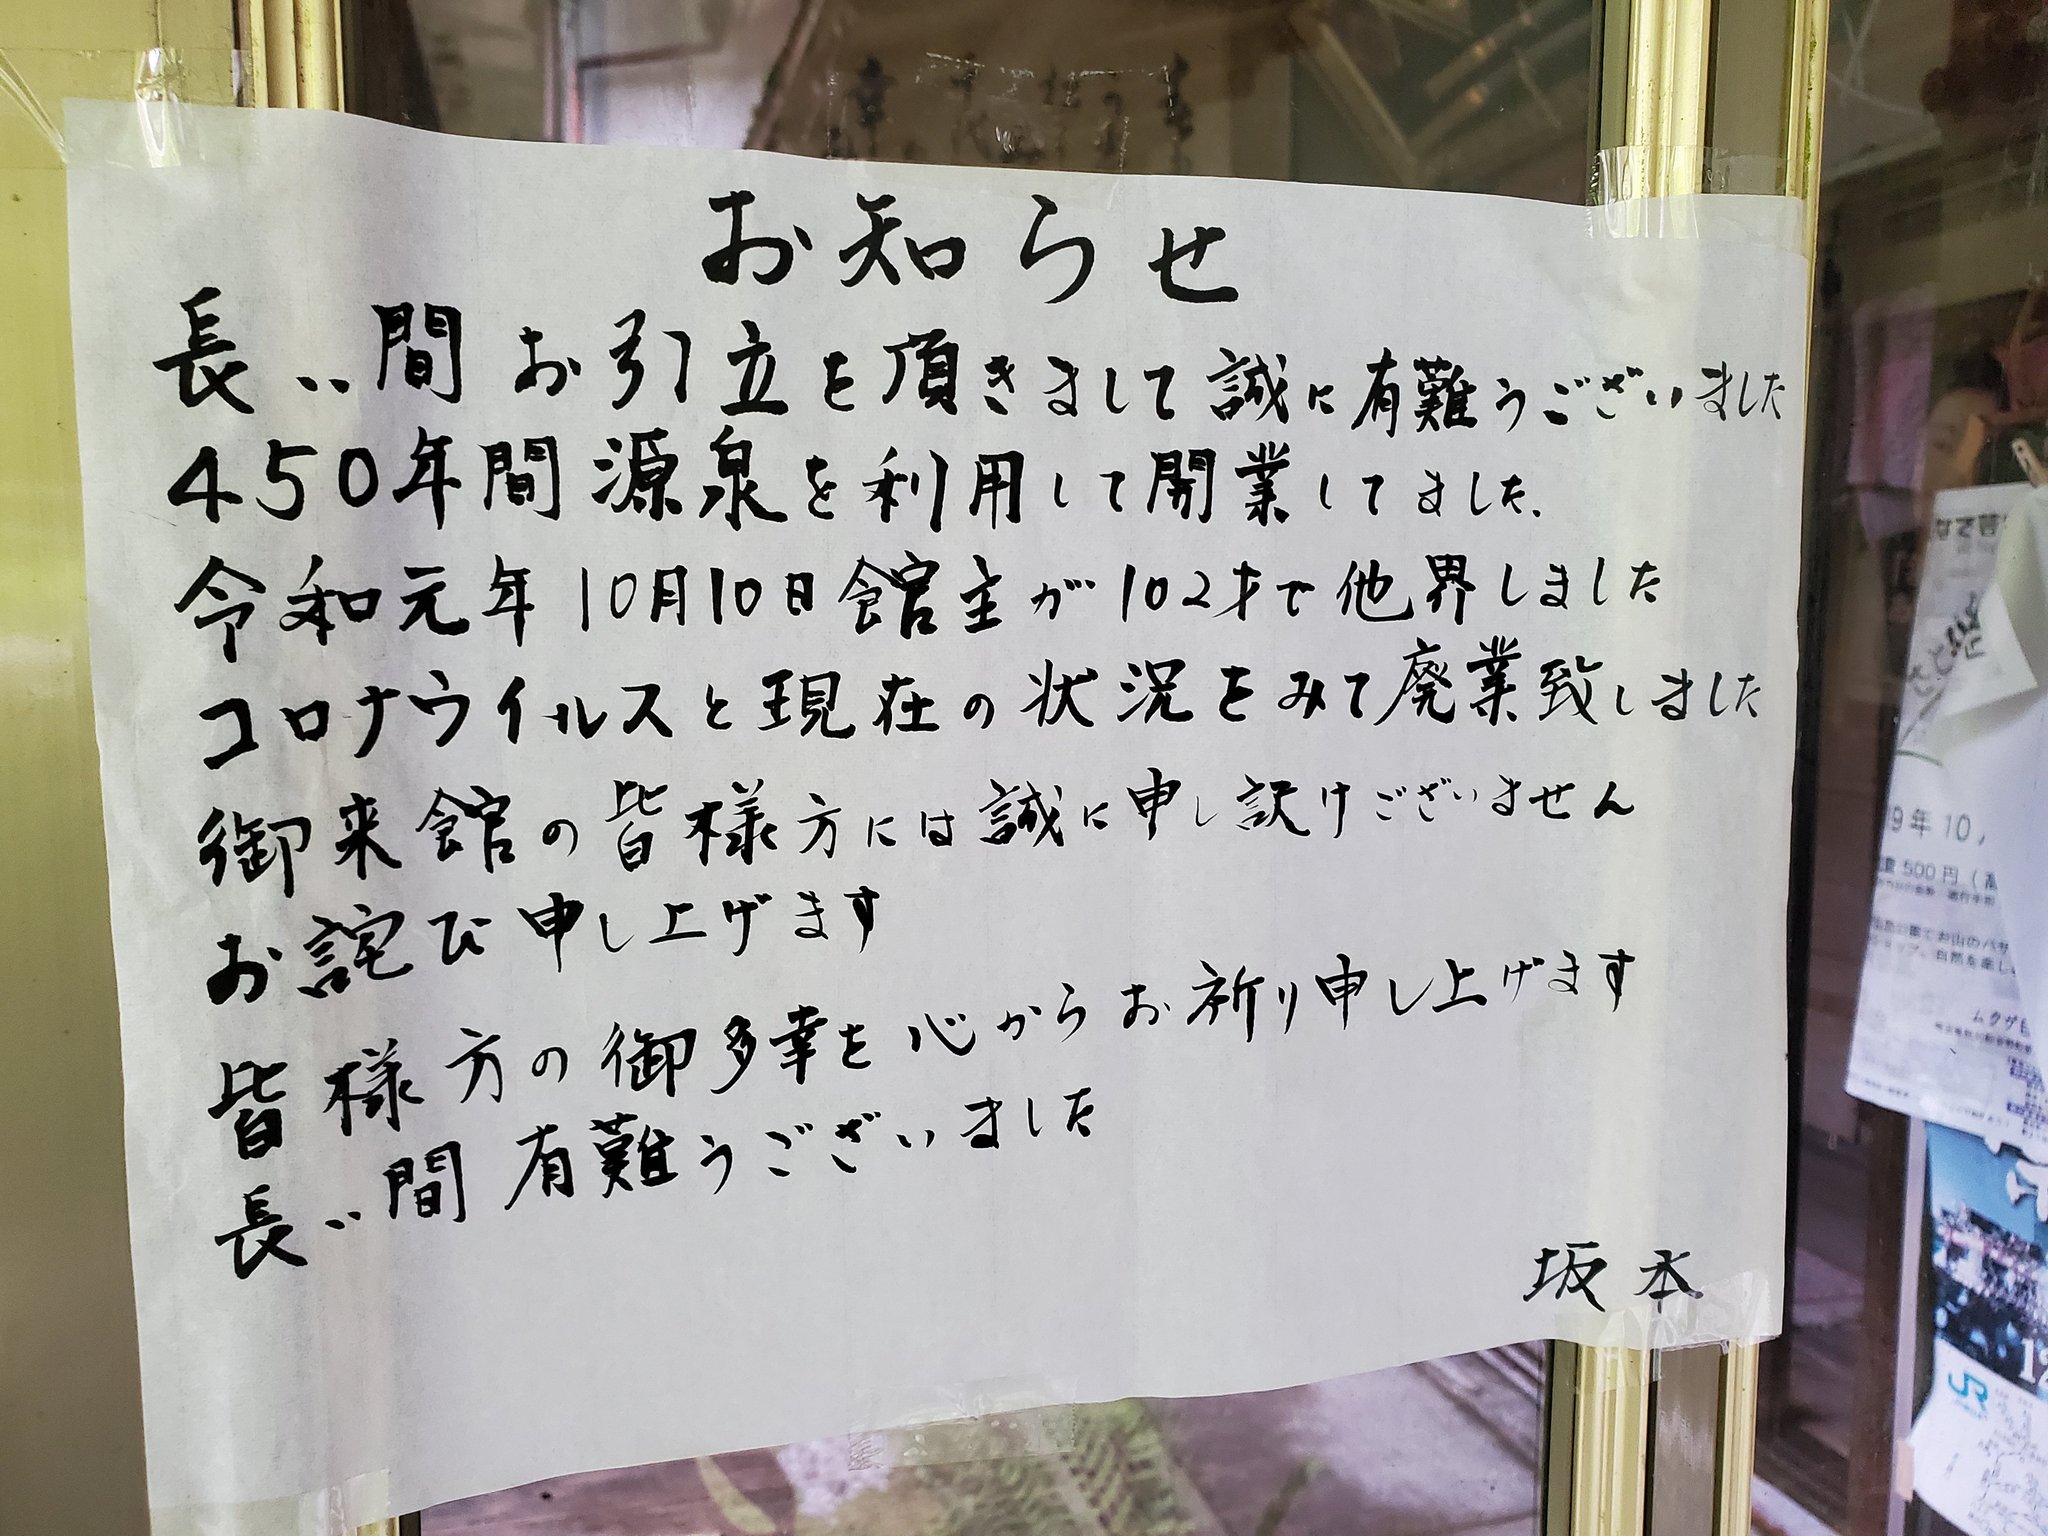 お知らせ
長い間お引立を頂きまして誠に有難うございました
450年間源泉を利用して開業してました.
令和元年10月10日館主が102才で他界しました
コロナウイルスと現在の状況をみて廃業致しました
御来館の皆様方には誠に申し訳けございません
お詫び申し上げます
皆様方の御多幸を心からお祈り申し上げます
長い間有難うございました
坂本
9年10,
500円(高
JR